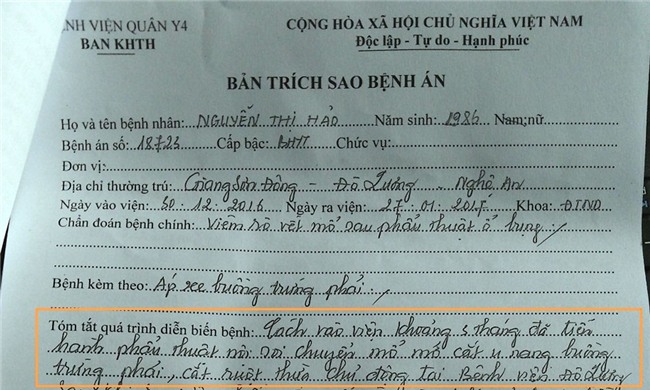 NH VIỆN QUÂN Y4
CỘNG HÒA XÃ HỘI CHỦ NGHĨA VIỆT NAM
BAN KHTH
Độc lập - Tự do - Hạnh phúc
BẢN TRÍCH SAO BỆNH ÁN
Họ và tên bệnh nhân: NGUYỄN THỊ HẢO Năm sinh: 1986 Nam;nữ
Bệnh án số: 18723 Cấp bậc: BHYT Chức vụ:
Đơn vị:
Địa chỉ thường trú: Giang Sơn Đông - Đô Lương - Nghệ An
Ngày vào viện: 30.12.2016 Ngày ra viện: 27.01.2017 Khoa:
Chẩn đoán bệnh chính: Viêm rò vết mổ sau phẫu thuật ổ bụng
Bệnh kèm theo: Áp xe buồng trứng phải
Tóm tắt quá trình diễn biến bệnh: Cách vào viện khoảng 5 tháng đã tiến
hành phẫu thuật nội soi chuyển mổ mở cắt u nang buồng
trứng phải, cắt ruột thừa chủ động tại Bệnh viện Đô Lương